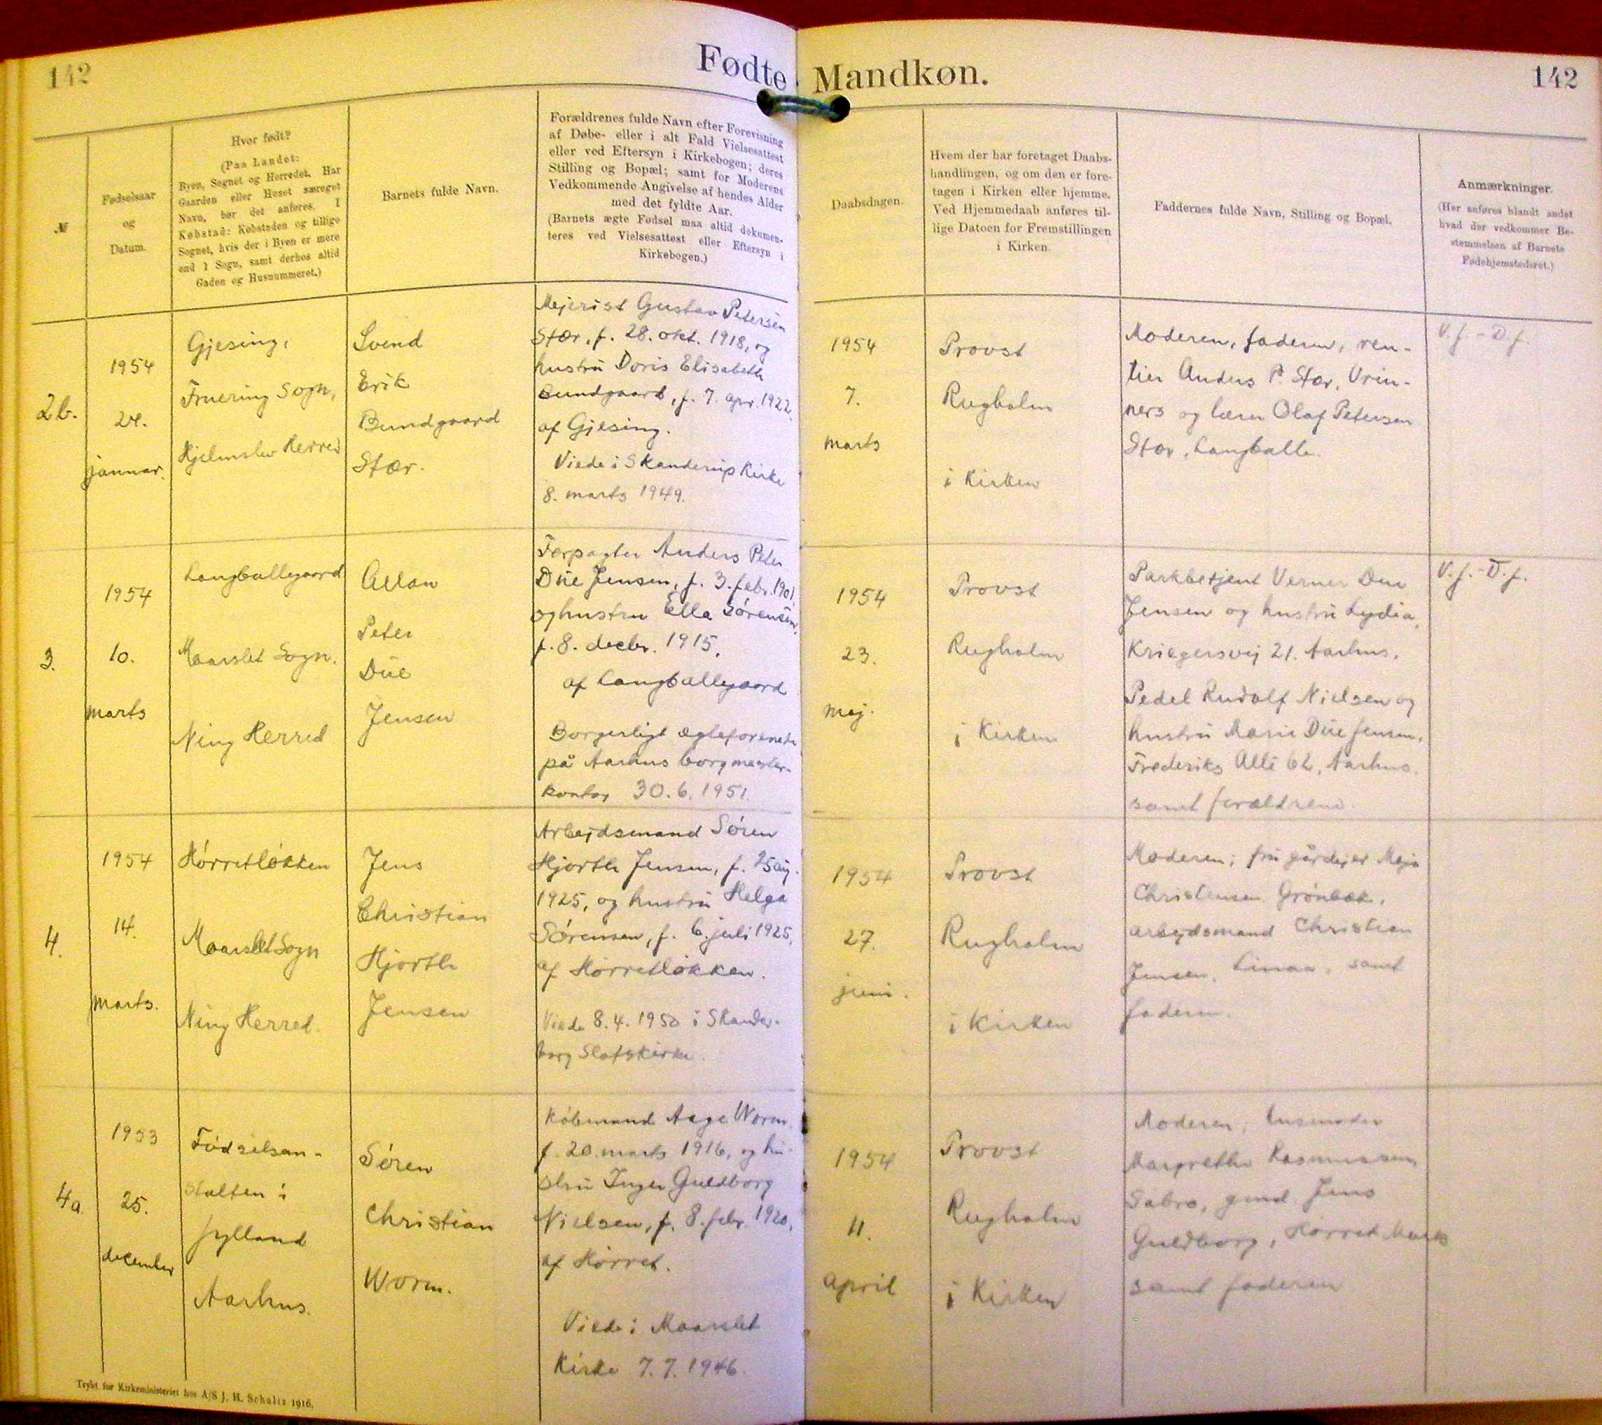 142
Fødte Mandkøn.
142
№
Fødselsaar
og
Datum.
Hvor født?
(Paa Landet:
Byen, Sognet og Herredet. Har
Gaarden eller Huset særeget
Navn, bør det anføres. I
Købstad: Købstaden og tillige
Sognet, hvis der i Byen er mere
end 1 Sogn, samt derhos altid
Gaden og Husnummeret.)
Barnets fulde Navn.
Forældrenes fulde Navn efter Forevisning
af Døbe- eller i alt Fald Vielsesattest
eller ved Eftersyn i Kirkebogen; deres
Stilling og Bopæl; samt for Moderens
Vedkommende Angivelse af hendes Alder
med det fyldte Aar.
(Barnets ægte Fødsel maa altid dokumen-
teres ved Vielsesattest eller Eftersyn i
Kirkebogen.)
Daabsdagen.
Hvem der har foretaget Daabs-
handlingen, og om den er fore-
tagen i Kirken eller hjemme.
Ved Hjemmedaab anføres til-
lige Datoen for Fremstillingen
i Kirken.
Faddernes fulde Navn, Stilling og Bopæl.
Anmærkninger.
(Her anføres blandt andet
hvad der vedkommer Be-
stemmelsen af Barnets
Fødehjemstedsret.)
2b.
1954
24.
januar.
Gjesing,
Fruering Sogn,
Hjelmslev Herred
Svend
Erik
Bundgaard
Stær.
Mejerist Gustav Petersen
Stær, f. 28. okt. 1918, og
hustru Doris Elisabeth
Bundgaard, f. 7. apr. 1922.
af Gjesing.
Viede i Skanderup Kirke
8. marts 1949.
1954
7.
marts
Provst
Rugholm
i Kirken
Moderen, faderen, ren-
tier Anders P. Stær, Vrin-
ners og lærer Olaf Petersen
Stær, Langballe.
V.f.-D.f.
3.
1954
10.
marts
Langballegaard
Maarslet Sogn.
Ning Herred
Allan
Peter
Due
Jensen
Forpagter Anders Peter
Due Jensen, f. 3. febr. 1901
og hustru Ella Sørensen,
f. 8. decbr. 1915,
af Langballegaard
Borgerligt ægteforenet
på Aarhus borgmester-
kontor 30.6.1951.
1954
23.
maj.
Provst
Rugholm
i Kirken
Parkbetjent Verner Due
Jensen og hustru Lydia,
Kriegersvej 21. Aarhus.
Pedel Rudolf Nielsen og
hustru Marie Due Jensen,
Frederiks Allé 62, Aarhus.
samt forældrene.
V.f.-D.f.
4.
1954
14.
marts.
Hørretløkken
Maarslet Sogn
Ning Herred.
Jens
Christian
Hjorth
Jensen
Arbejdsmand Søren
Hjorth Jensen, f. 25
1925, og hustru Helga
Sørensen, f. 6. juli 1925,
af Hørretløkken.
Viede 8.4.1950 i Skander-
borg Slotskirke.
1954
27.
juni.
Provst
Rugholm
i Kirken
Moderen; fru gårdejer Maja
Christensen Grønbæk,
arbejdsmand Christian
Jensen, Linaa, samt
faderen.
4a
1953
25.
december
Fødselsan-
stalten i
Jylland
Aarhus.
Søren
Christian
Worm.
Købmand Aage Worm
f. 20. marts 1916, og hu-
stru Inger Guldborg
Nielsen, f. 8. febr. 1920,
af Hørret.
Viede i Maarslet
Kirke 7.7.1946.
1954
11.
april
Provst
Rugholm
i Kirken
Moderen, husmoder
Margrethe Rasmussen
Sabro, gmd. Jens
Guldborg, Hørret Mark
samt faderen
Trykt for Kirkeministeriet hos A/S J. H. Schultz 1916.